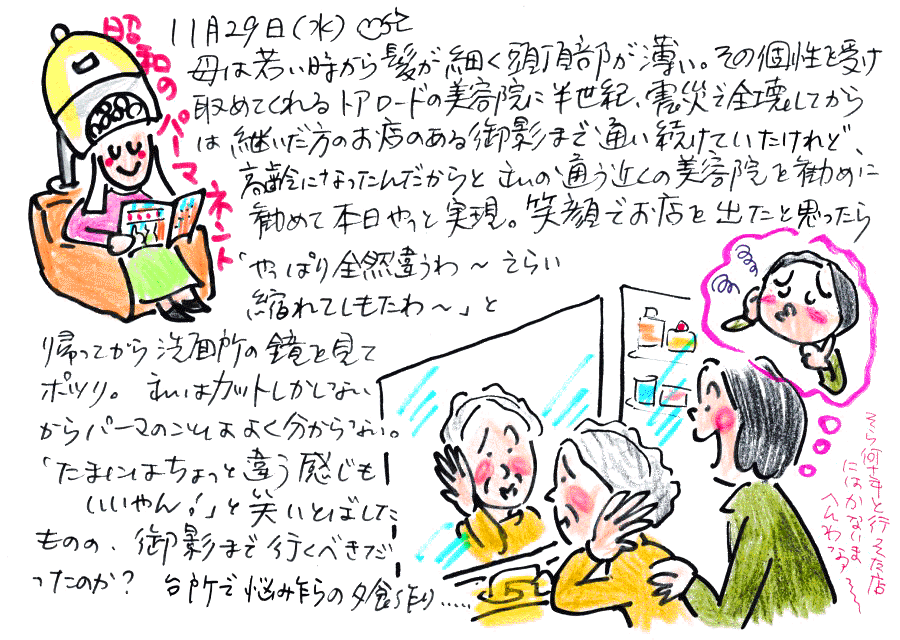 昭和のパーマネント
11月29日(水)
母は若い時から髪が細く頭頂部が薄い。その個性を受け
収めてくれるトアロードの美容院に半世紀、震災で全壊してから
は継いだ方のお店のある御影まで通い続けていたけれど、
高齢になったんだからと通う近くの美容院を勧めに
勧めて本日やっと実現。笑顔でお店を出たと思ったら
「やっぱり全然違うわ〜えらい
縮れてしもたわ〜」と
帰ってから洗面所の鏡を見て
ポツリ。はカットしかしない
からパーマのことはよく分からない。
「たまにはちょっと違う感じも
いいやん!」と笑いとばした
ものの、御影まで行くべきだ
ったのか?台所で悩みながらの夕食作り.....
そら何十年と行ってた店
にはかないま
へんわ